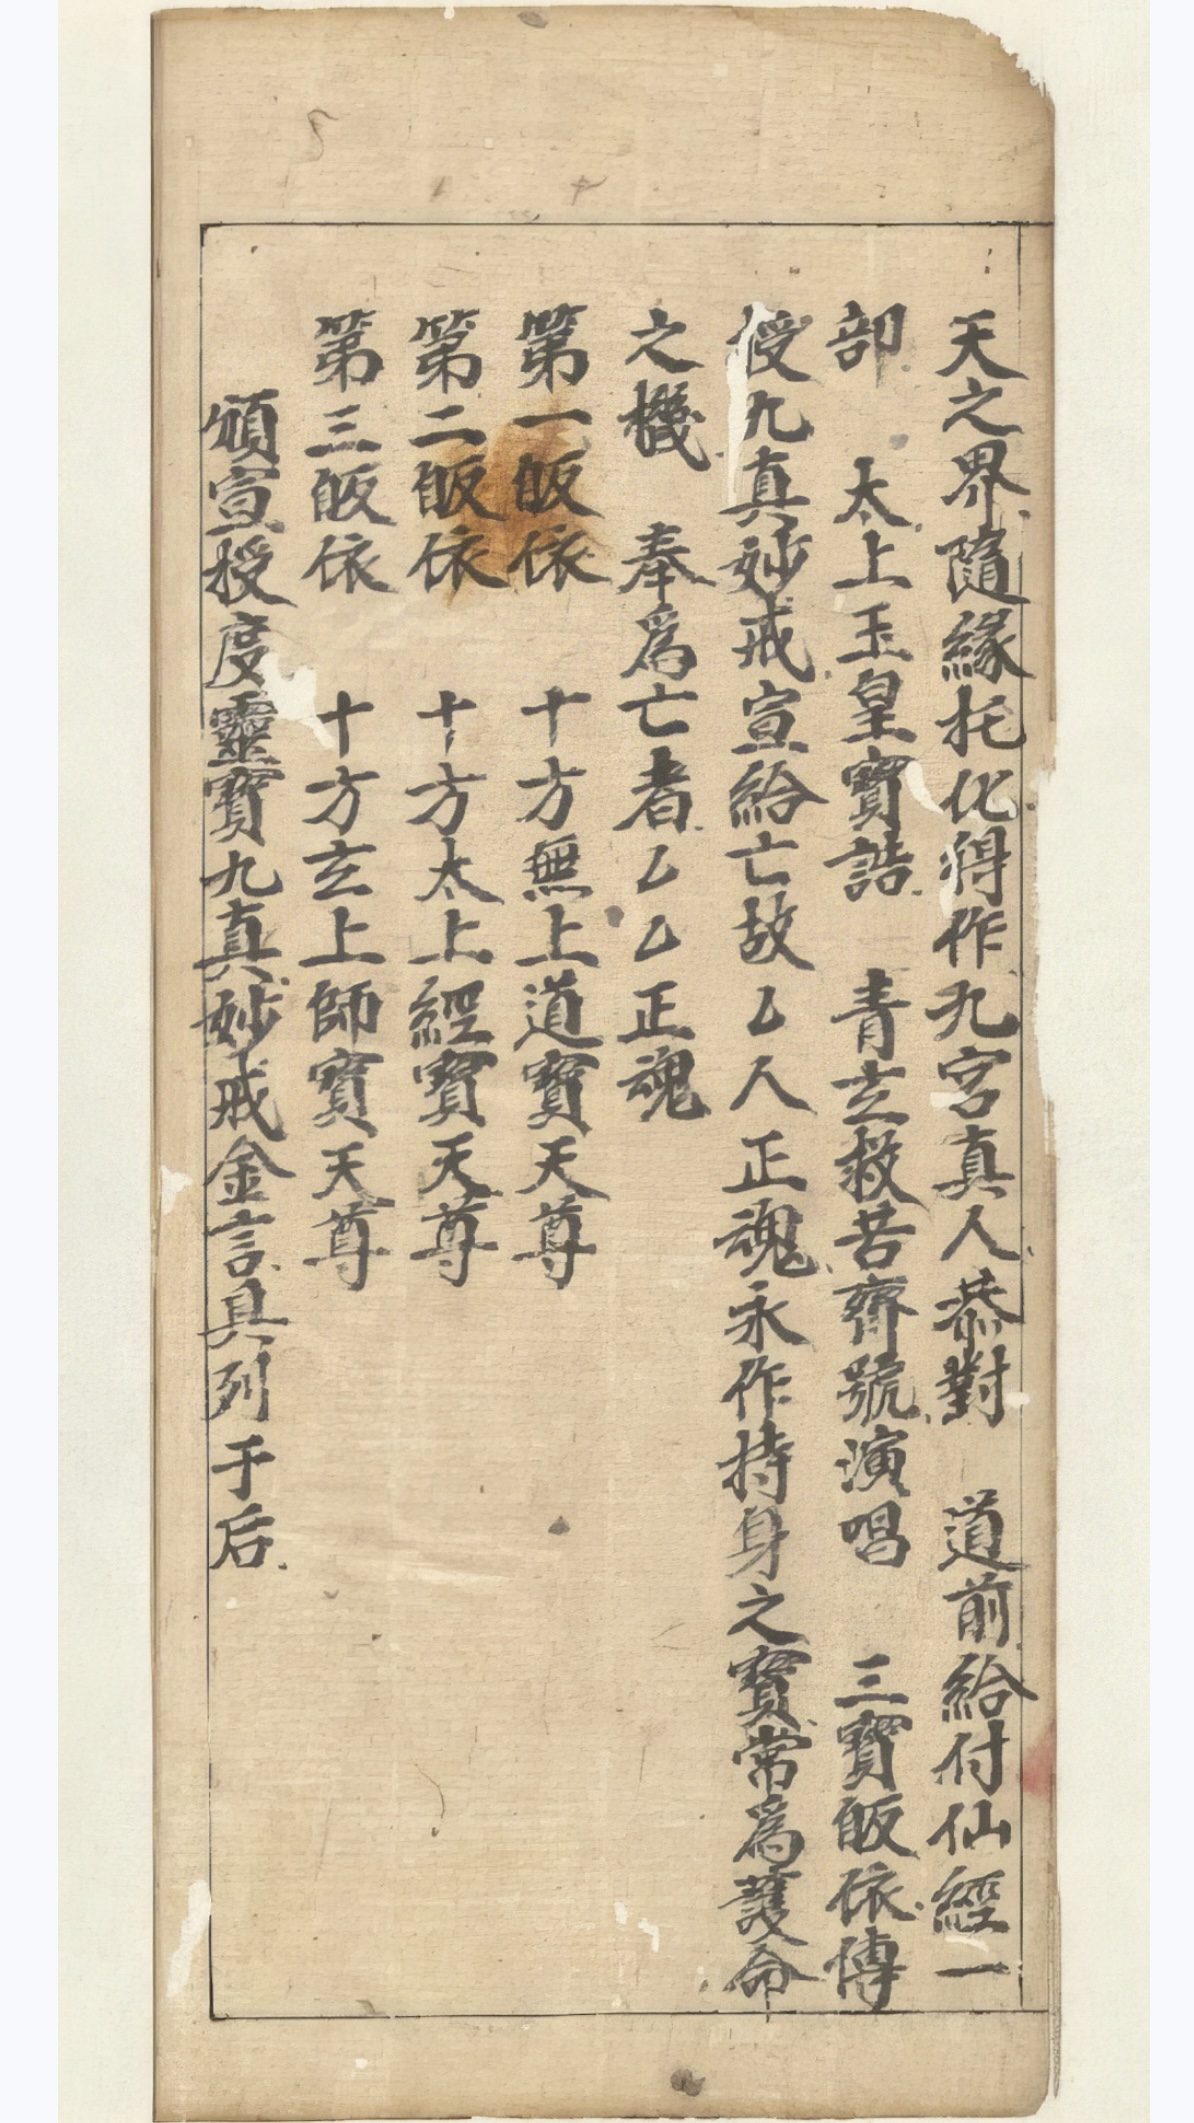 天之界隨緣托化得作九宮真人恭對　道前給付仙經一
部　太上玉皇寶誥　青玄救苦齊號演唱　三寶皈依傳
授九真妙戒宣給亡故乙人正魂永作持身之寶常為護命
之機　奉為亡者乙乙正魂
第一皈依　十方無上道寶天尊
第二皈依　十方太上經寶天尊
第三皈依　十方玄上師寶天尊
頒宣授度靈寶九真妙戒金言具列于后